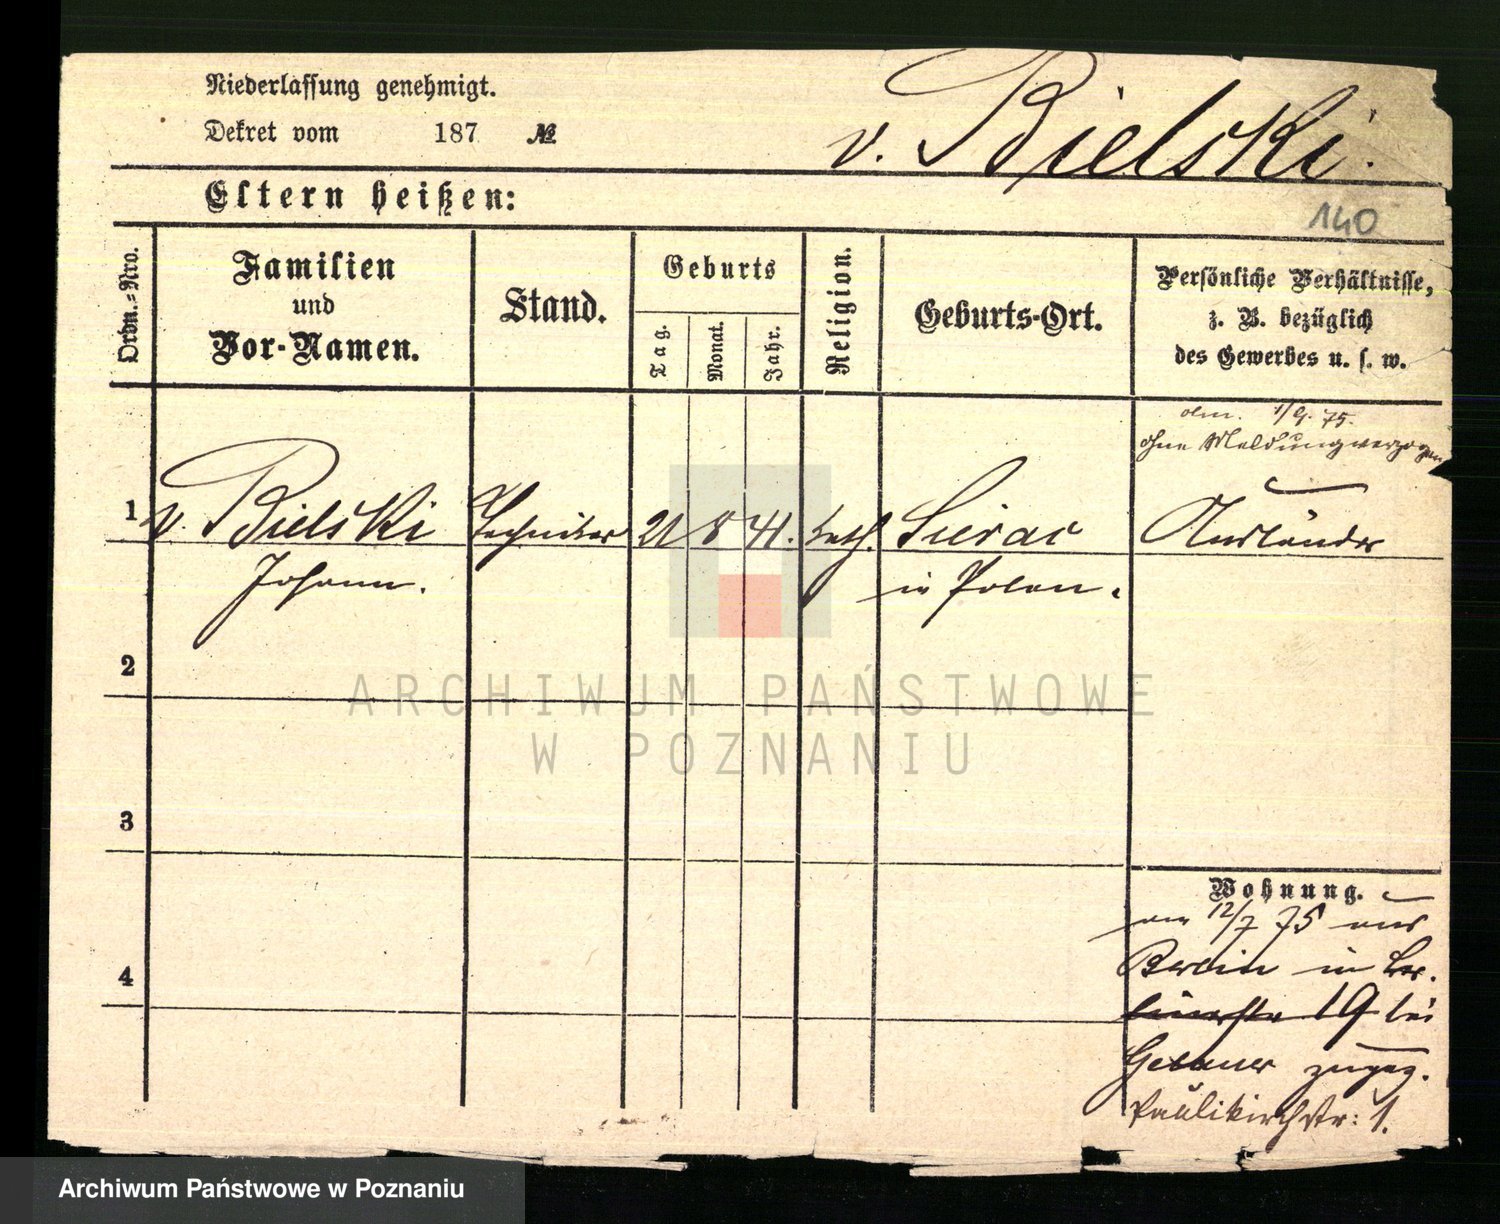 Niederlassung genehmigt.
Dekret vom 187 №
v. Bielski.
Eltern heißen:
140
Ordn.-Nro.
Familien
und
Vor-Namen.
Stand.
Geburts
Tag.
Monat.
Jahr.
Religion.
Geburts-Ort.
Persönliche Verhältnisse,
z. B. bezüglich
des Gewerbes u. s. w.
1/9. 75.
ohne Meldung verzogen
1 v. Bielski Techniker 21 8 41. kath. Sierac Ausländer
Johann. in Polen.
2
3
4
Wohnung.
am 12/7 75 aus
Berlin in
19 bei
Gebauer zugez.
Paulikirchstr: 1.
ARCHIWUM PAŃSTWOWE
W POZNANIU
Archiwum Państwowe w Poznaniu